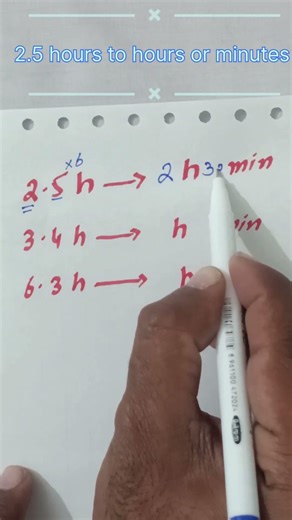 2.5 hours to hours or minutes
×6
2.5 h → 2 h 30 min
3.4 h → h min
6.3 h → h